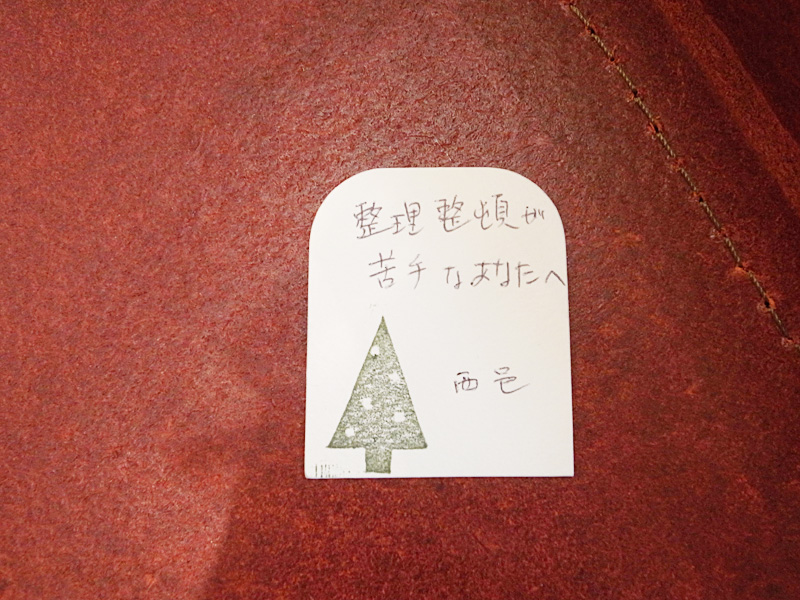 整理整頓が
苦手なあなたへ
西邑